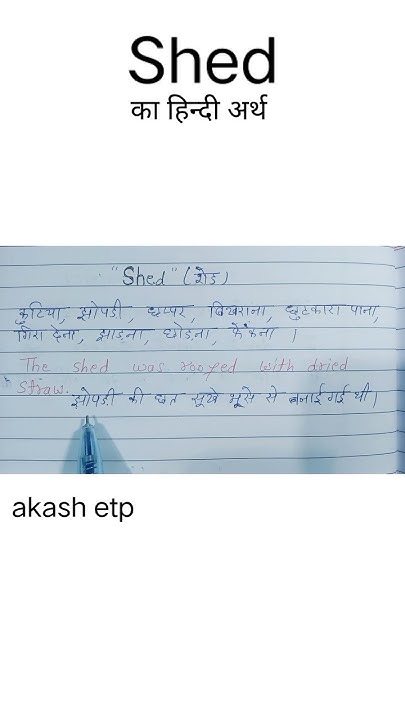 Shed
का हिन्दी अर्थ
"Shed" (शेड)
कुटिया, झोपडी, छप्पर, बिखराना, छुटकारा पाना,
गिरा देना, झाड़ना, छोडना, फेंकना ।
The shed was roofed with dried
straw.
झोपड़ी की छत सूखे भूसे से बनाई गई थी।
akash etp